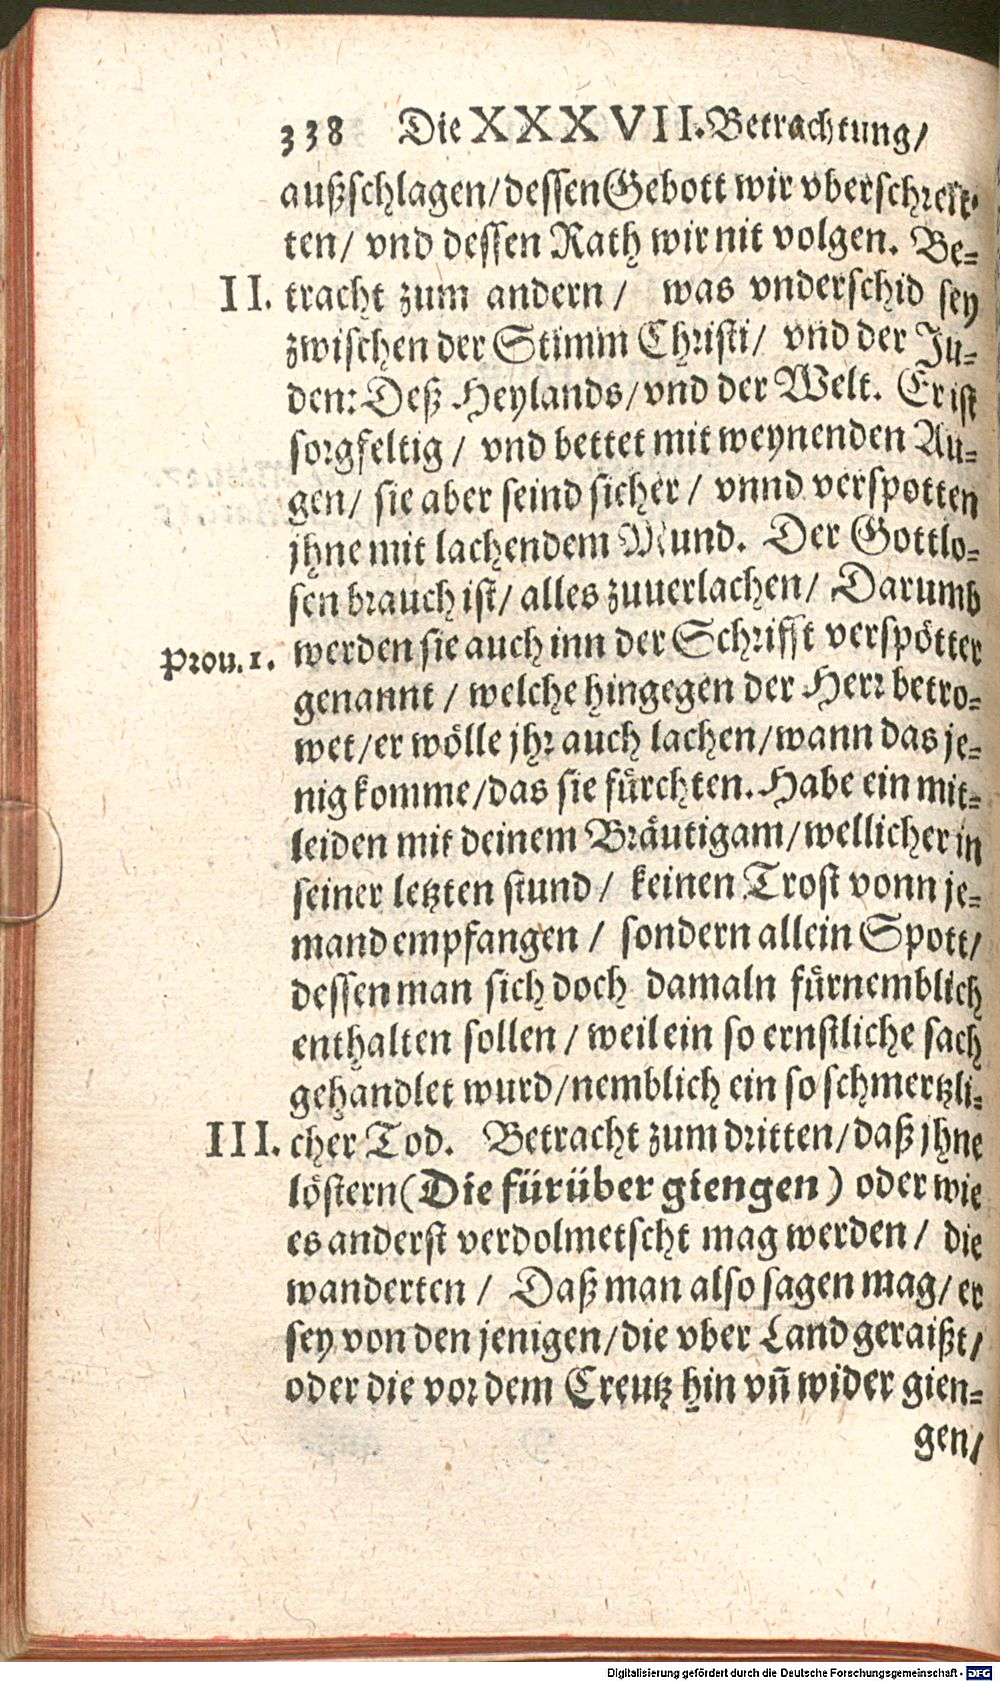 338 Die XXXVII. Betrachtung/
außschlagen/dessen Gebott wir vberschreit-
ten/ vnd dessen Rath wir nit volgen. Be-
II. tracht zum andern/ was vnderschid sey
zwischen der Stimm Christi/ vnd der Ju-
den: Deß Heylands/vnd der Welt. Er ist
sorgfeltig/ vnd bettet mit weynenden Au-
gen/ sie aber seind sicher/ vnnd verspotten
jhne mit lachendem Mund. Der Gottlo-
sen brauch ist/ alles zuuerlachen/ Darumb
Prou. 1. werden sie auch inn der Schrifft verspötter
genannt/ welche hingegen der Herr betro-
wet/er wölle jhr auch lachen/wann das je-
nig komme/das sie fürchten. Habe ein mit-
leiden mit deinem Bräutigam/wellicher in
seiner letzten stund/ keinen Trost vonn je-
mand empfangen/ sondern allein Spott/
dessen man sich doch damaln fürnemblich
enthalten sollen/weil ein so ernstliche sach
gehandlet wurd/nemblich ein so schmertzli-
III. cher Tod. Betracht zum dritten/daß jhne
löstern (Die fürüber giengen) oder wie
es anderst verdolmetscht mag werden/ die
wanderten/ Daß man also sagen mag/ er
sey von den jenigen/die vber Land geraißt/
oder die vor dem Creutz hin vñ wider gien-
gen/
Digitalisierung gefördert durch die Deutsche Forschungsgemeinschaft - DFG